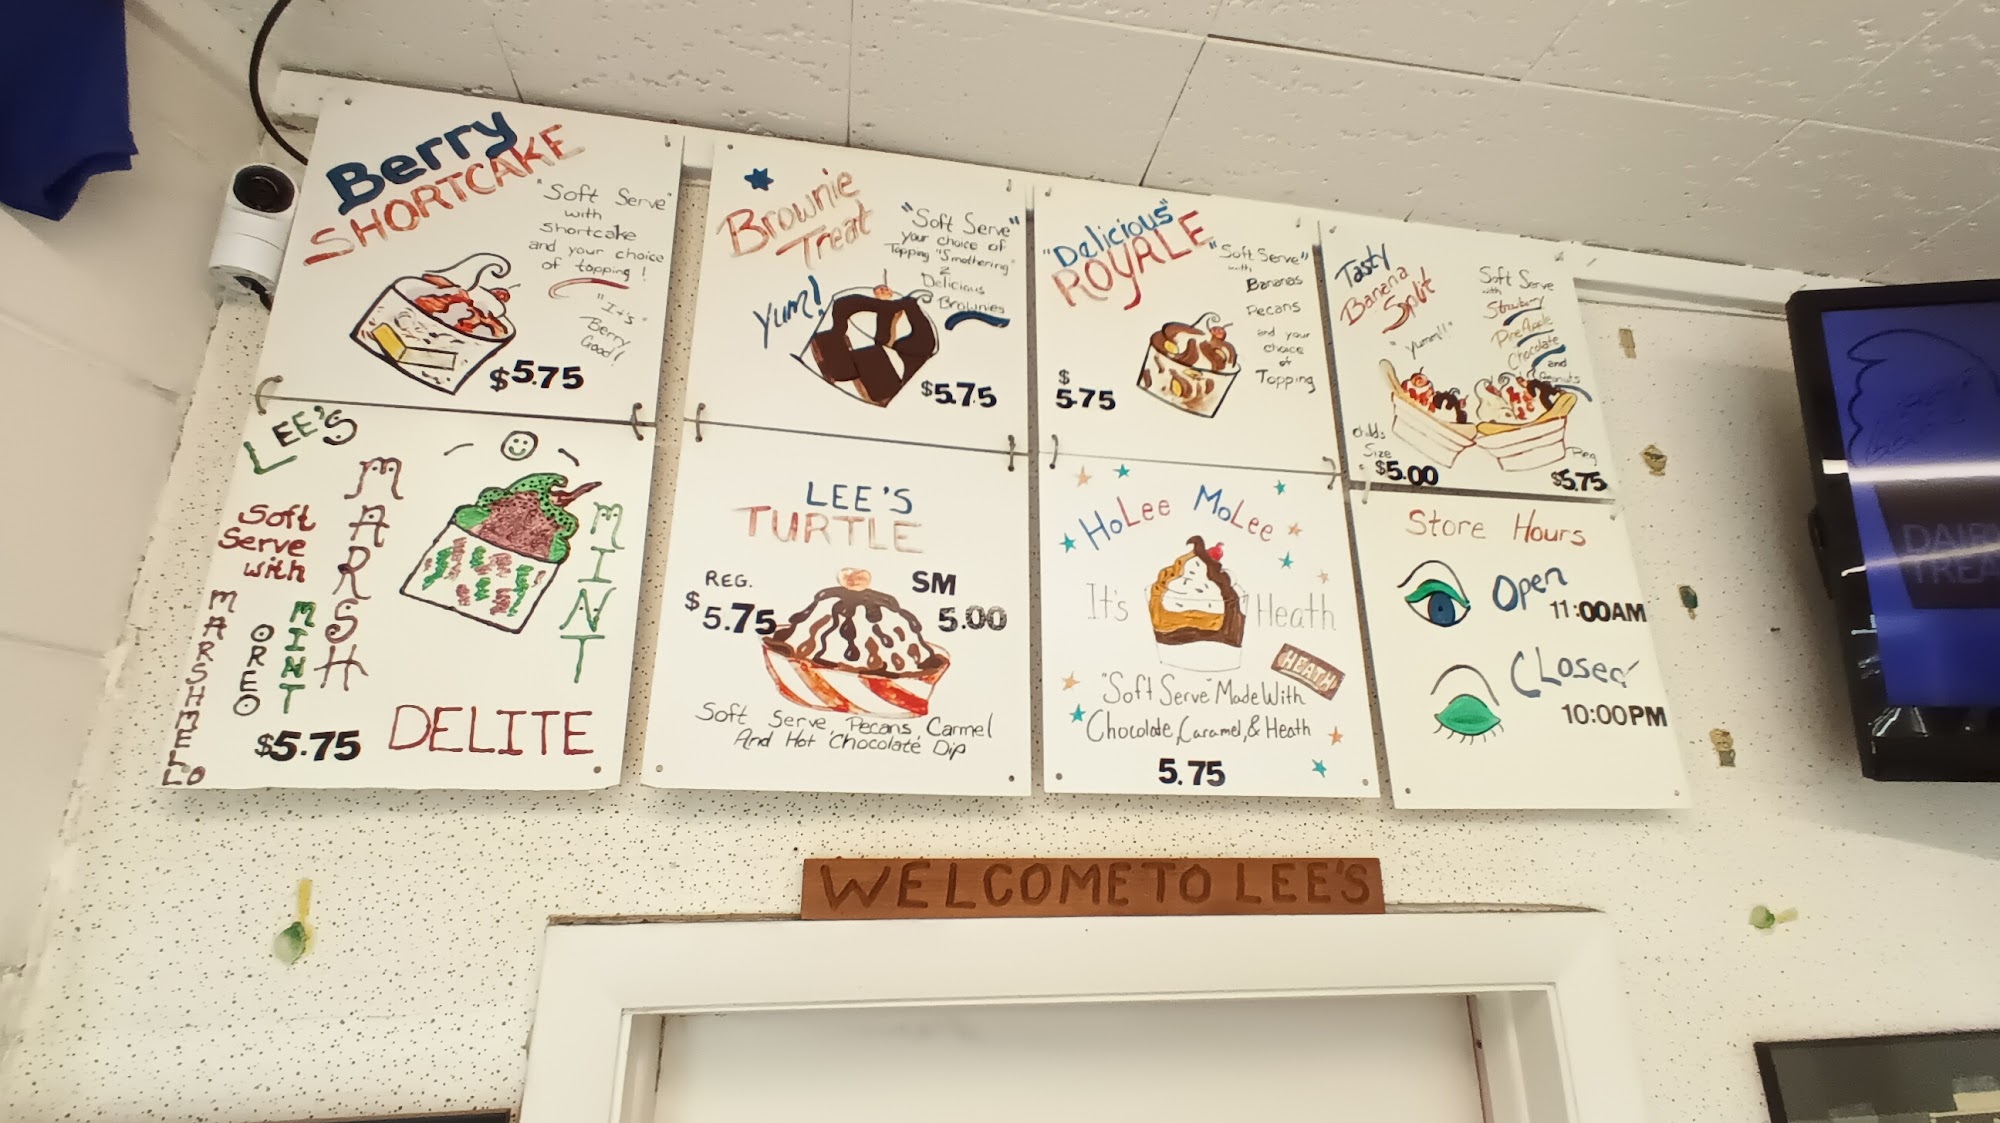 Berry
SHORTCAKE
"Soft Serve"
with
Shortcake
and your choice
of topping!
"It's"
Berry
Good!
$5.75
Brownie
Treat
"Soft Serve"
your choice of
Topping "Smothering"
2
Delicious
Brownies
Yum!
$5.75
"Delicious"
ROYALE
"Soft Serve"
with
Bananas
Pecans
and your
choice
of
Topping
$
5.75
Tasty
Banana
Split
"Yumm!!"
Soft Serve
with
Strawberry
PineApple
Chocolate
and
Peanuts
Childs
Size
$5.00
Reg
$5.75
LEE'S
MARSH
MINT
DELITE
Soft
Serve
with
MARSHMELLO
OREO
MINT
$5.75
LEE'S
TURTLE
REG.
$5.75
SM
5.00
Soft Serve, Pecans, Carmel
And Hot Chocolate Dip
HoLee MoLee
It's Heath
HEATH
"Soft Serve" Made With
Chocolate, Caramel, & Heath
5.75
Store Hours
Open
11:00AM
CLosed
10:00PM
WELCOME TO LEE'S